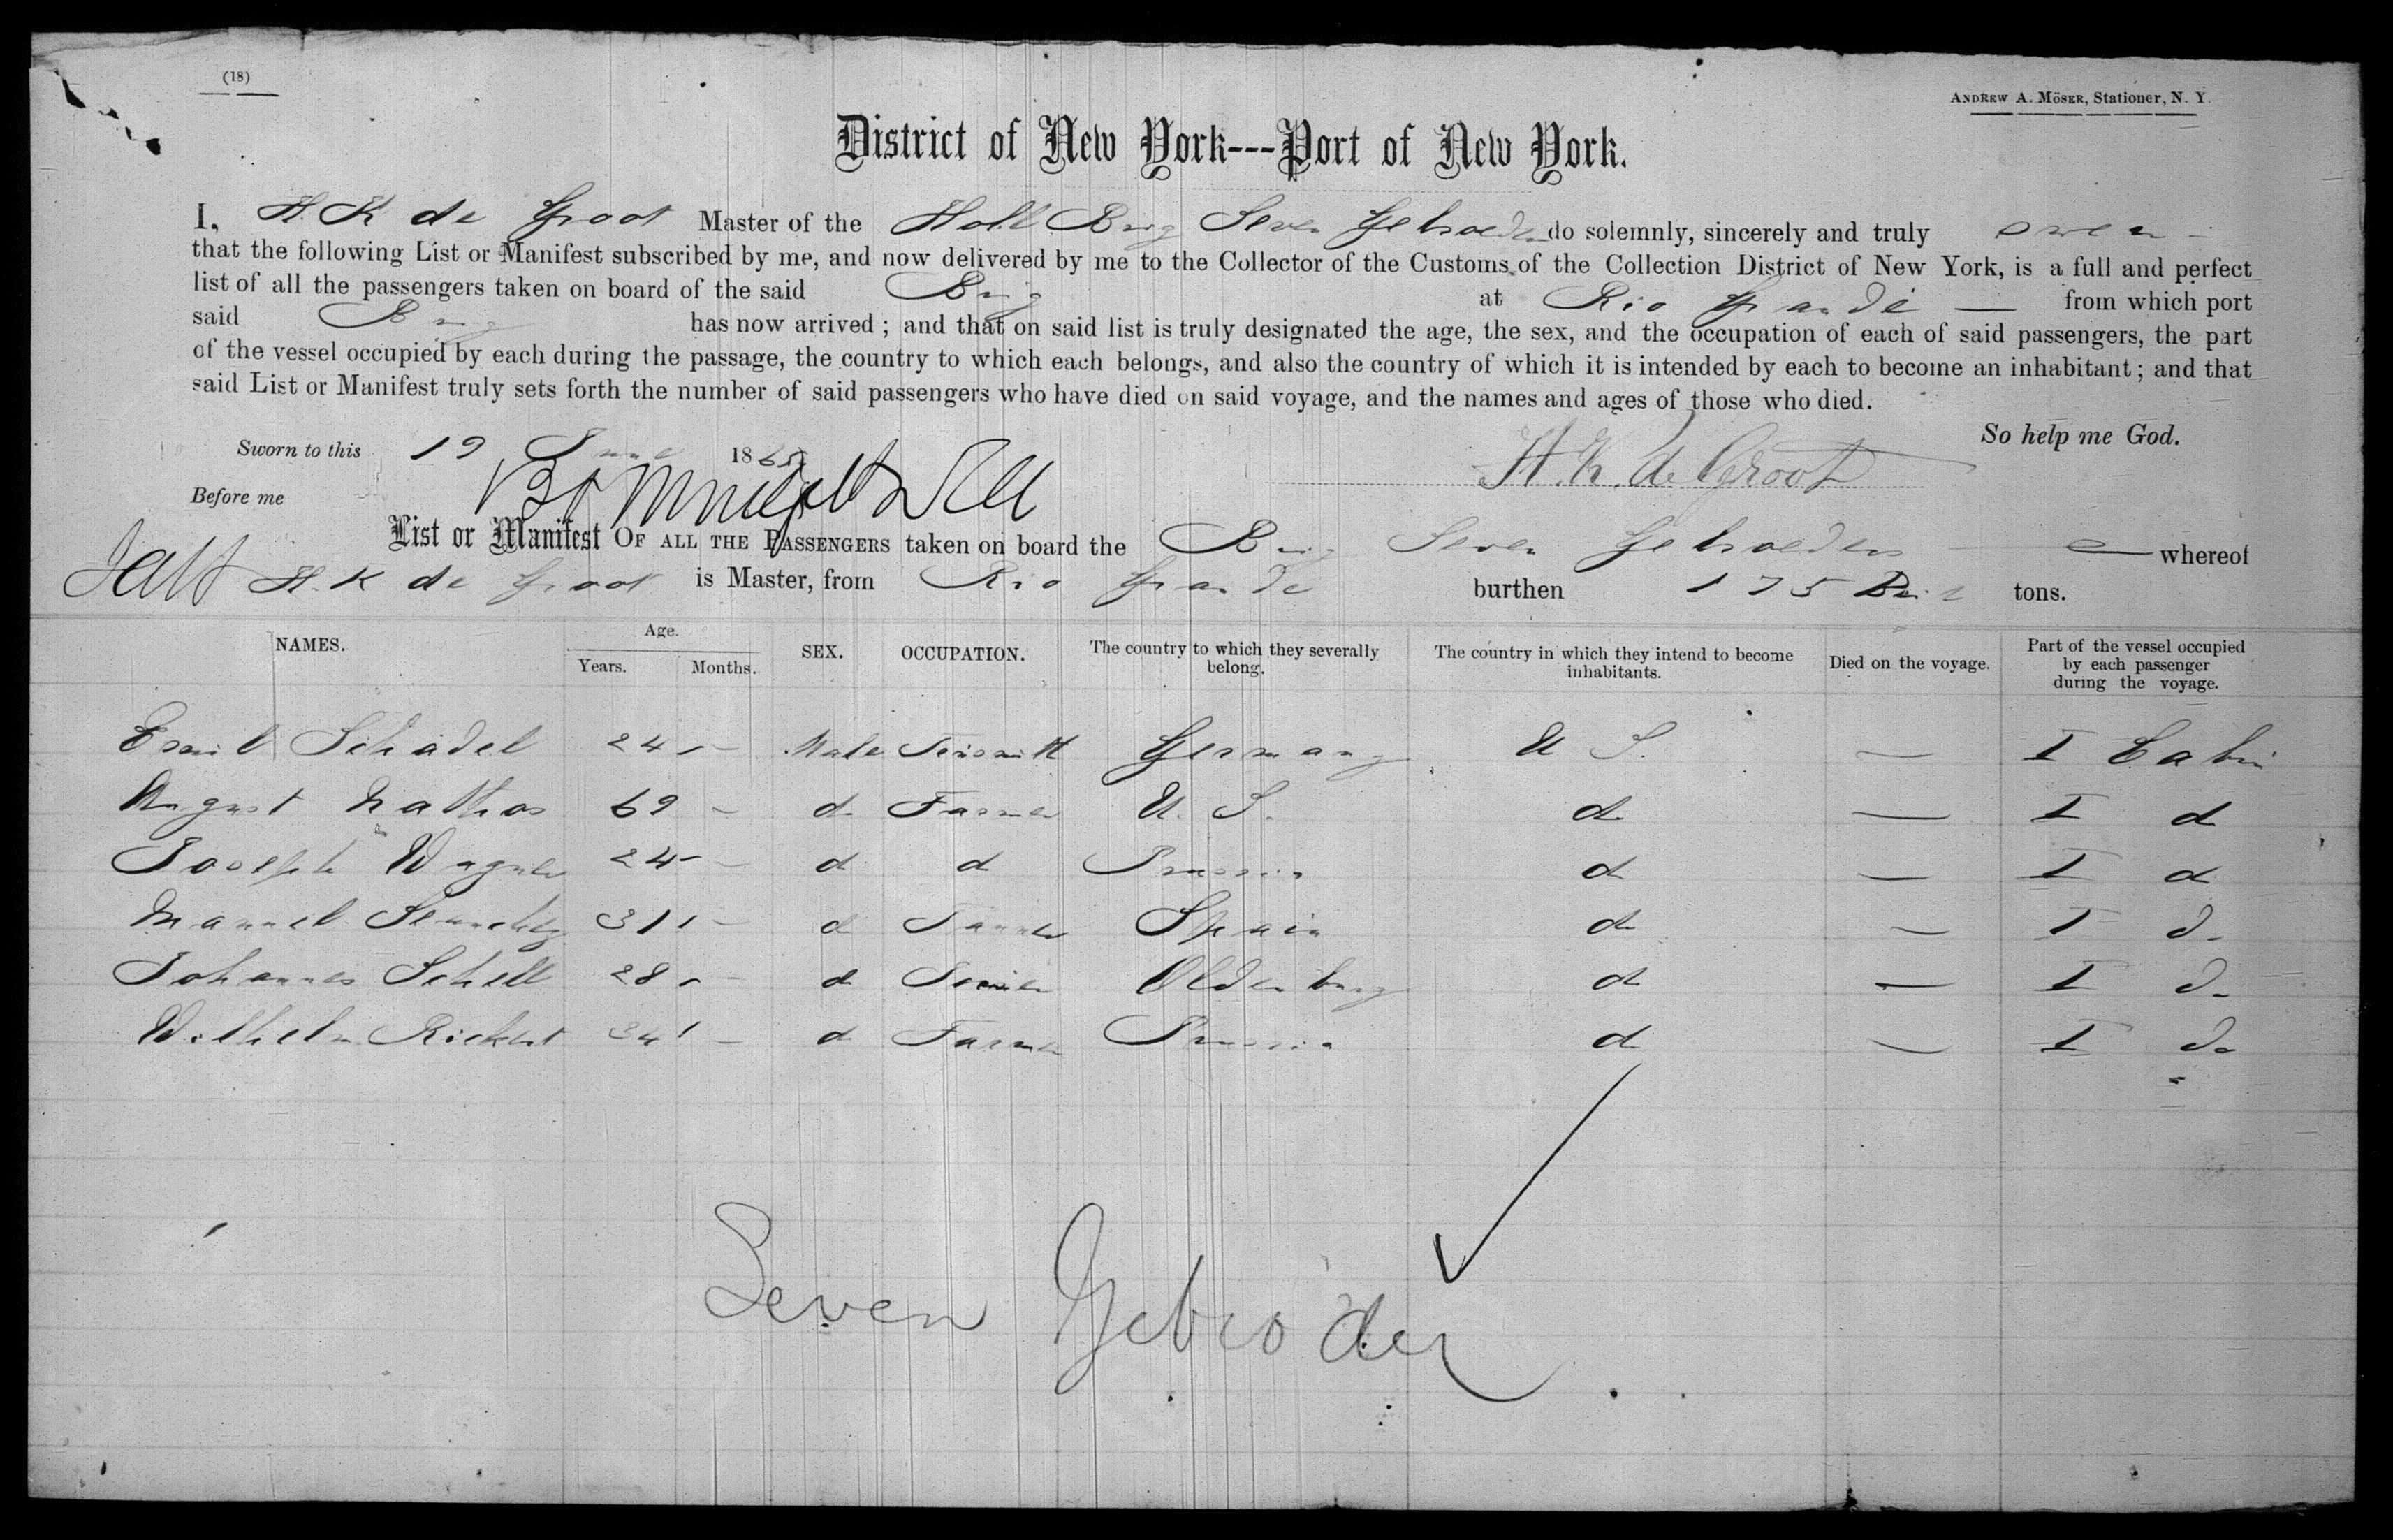 (18)
ANDREW A. MÖSER, Stationer, N. Y.
District of New York---Port of New York.
I, H K de Groot Master of the Holl Brig Seven Gebroeders do solemnly, sincerely and truly swear
that the following List or Manifest subscribed by me, and now delivered by me to the Collector of the Customs of the Collection District of New York, is a full and perfect
list of all the passengers taken on board of the said Brig at Rio Grande — from which port
said Brig has now arrived ; and that on said list is truly designated the age, the sex, and the occupation of each of said passengers, the part
of the vessel occupied by each during the passage, the country to which each belongs, and also the country of which it is intended by each to become an inhabitant ; and that
said List or Manifest truly sets forth the number of said passengers who have died on said voyage, and the names and ages of those who died.
So help me God.
Sworn to this 19 June 1865
H. K. de Groot
Before me
List or Manifest OF ALL THE PASSENGERS taken on board the Brig Seven Gebroeders whereof
H. K de Groot is Master, from Rio Grande burthen 175 tons.
NAMES. Age. Years. Months. SEX. OCCUPATION. The country to which they severally belong. The country in which they intend to become inhabitants. Died on the voyage. Part of the vessel occupied by each passenger during the voyage.
Emil Schädel 24 - Male Germany U S. — I Cabin
August Mathas 69 - d Farmer U. S. d — I d
Joseph Wagner 24 - d d Prussia d — I d
Manuel 31 - d Tanner Spain d — I do
Johannes Schell 28 - d Oldenburg d — I do
Wilhelm Rickert 34 - d Farmer Prussia d — I do
Seven Gebroder